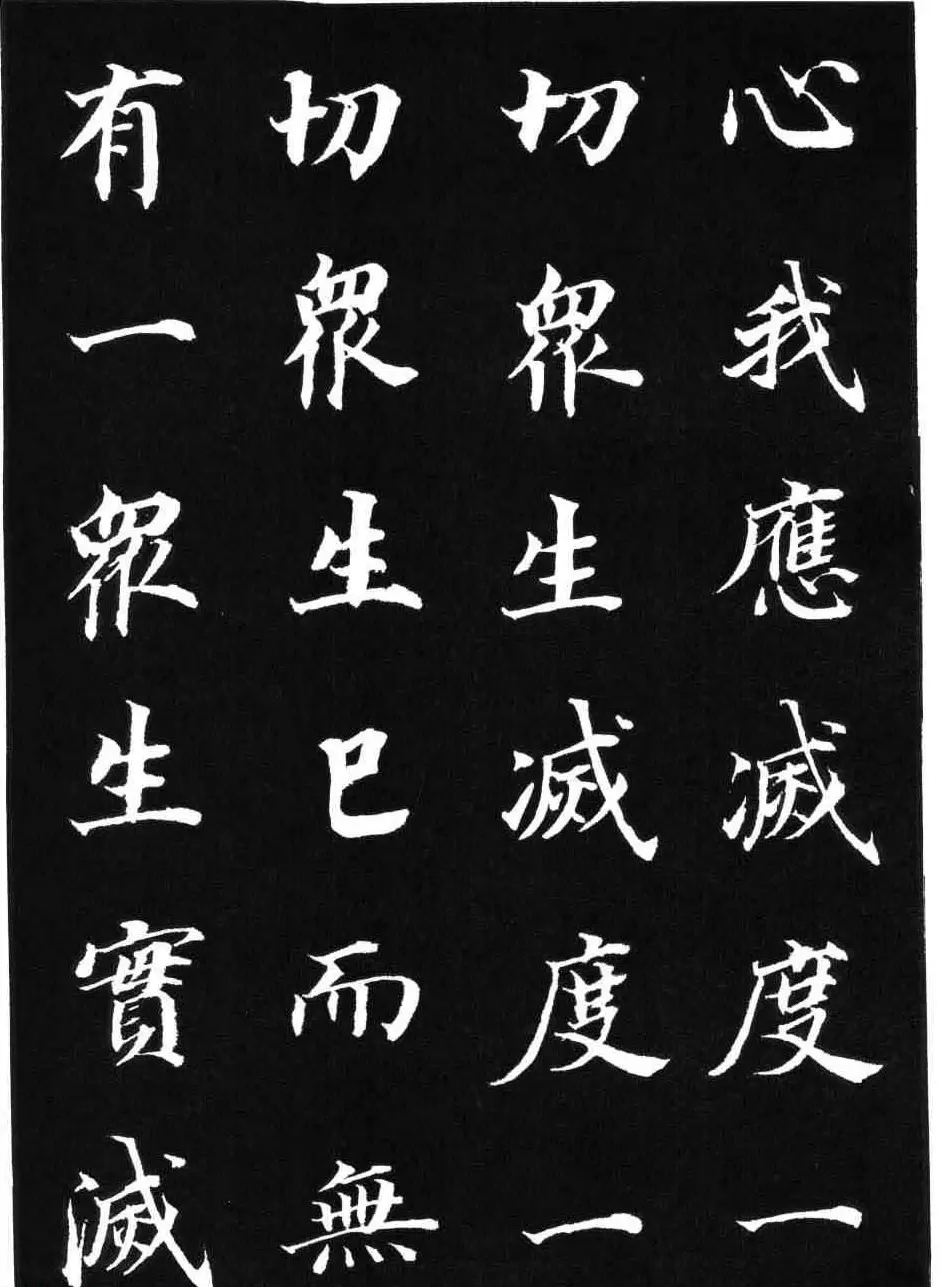 心我應滅度一
切眾生滅度一
切眾生已而無
有一眾生實滅